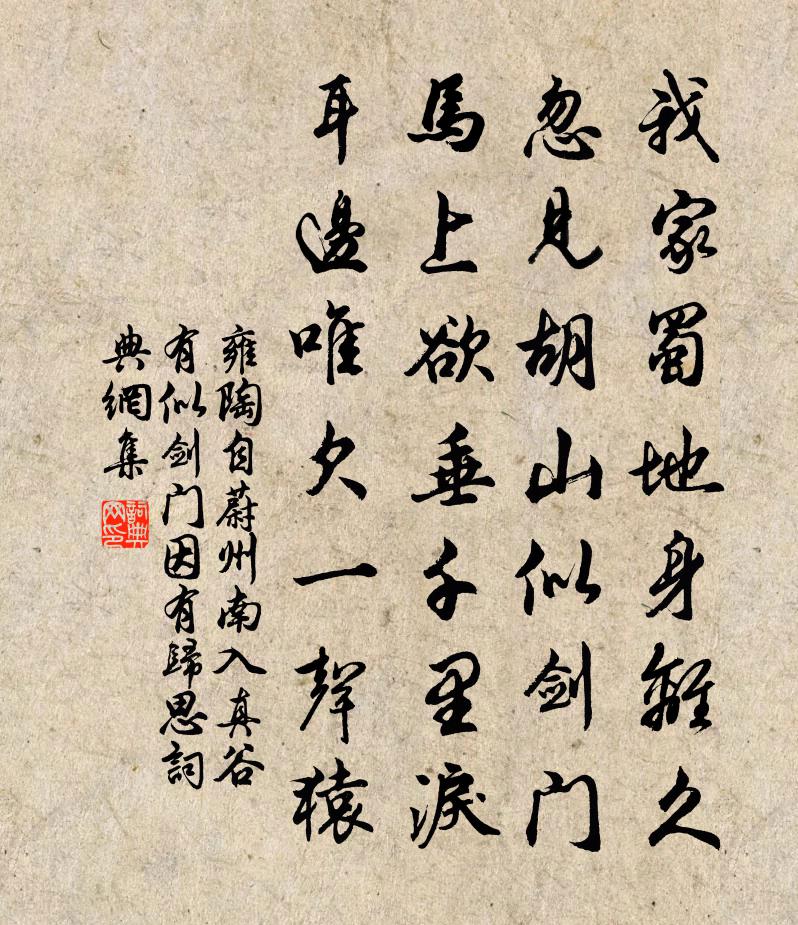 我家蜀地身離久
忽見胡山似剑门
馬上欲垂千里淚
耳邊唯欠一聲猿
雍陶自蔚州南入真谷
有似剑门因有歸思詞
典網集
詞典网印